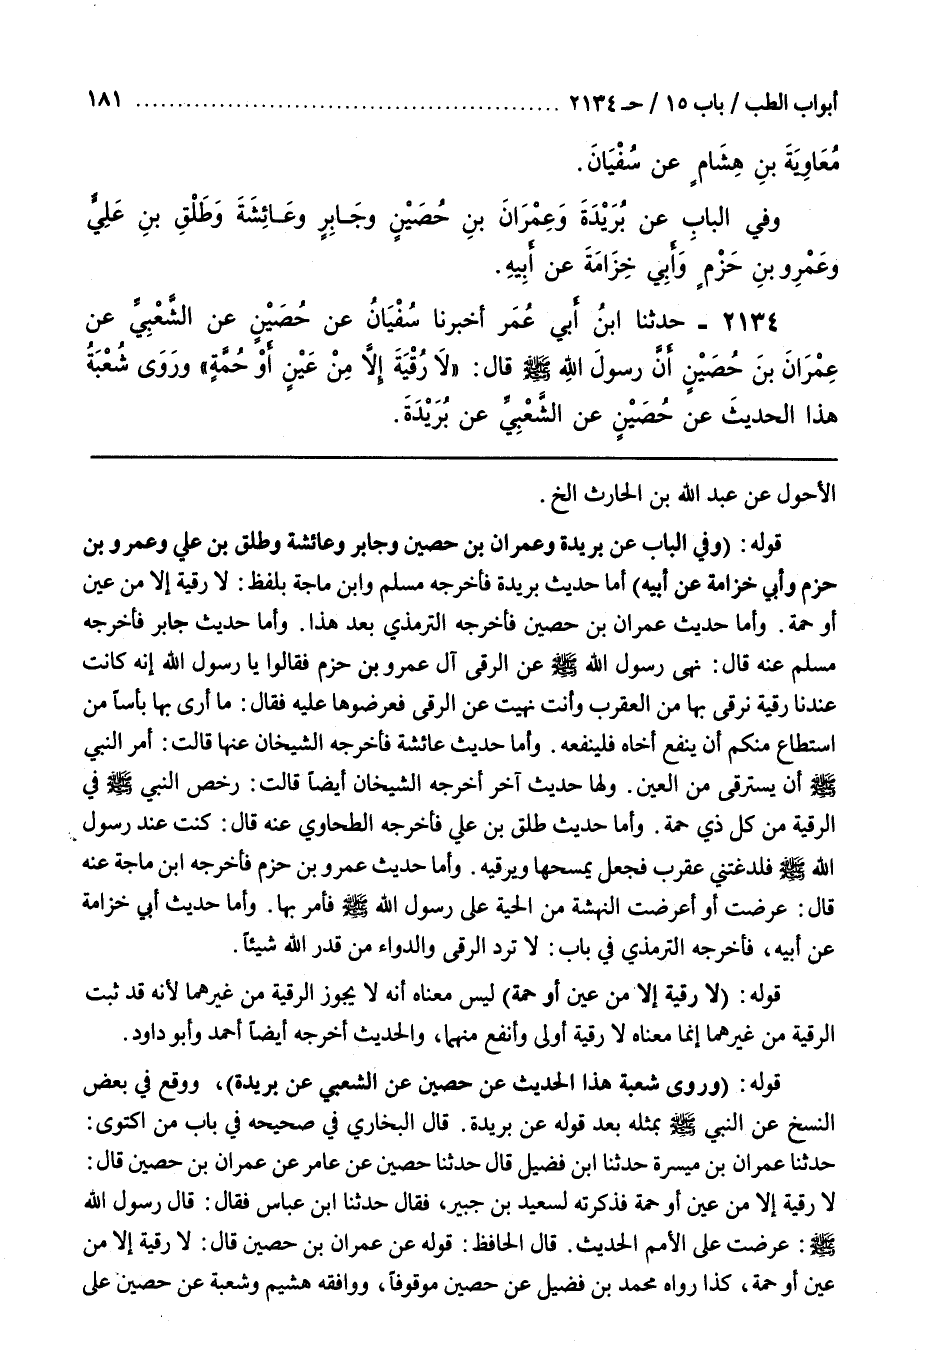 أبواب الطب / باب ١٥ / حـ ٢١٣٤ ................................................... ١٨١
مُعَاوِيَةَ بنِ هِشَامٍ عن سُفْيَانَ.
وفي البابِ عن بُرَيْدَةَ وَعِمْرَانَ بنِ حُصَيْنٍ وجَـابِرٍ وعَـائِشَةَ وَطَلْقِ بنِ عَلِيٍّ
وعَمْرِو بنِ حَزْمٍ وَأَبِي خِزَامَةَ عن أَبِيهِ.
٢١٣٤ ـ حدثنا ابنُ أَبي عُمَر أخبرنا سُفْيَانُ عن حُصَيْنٍ عن الشَّعْبِيِّ عن
عِمْرَانَ بنَ حُصَيْنٍ أنَّ رسولَ اللهِ ﷺ قال: «لَا رُقْيَةَ إِلَّا مِنْ عَيْنٍ أَوْ حُمَّةٍ» ورَوَى شُعْبَةُ
هذا الحديثَ عن حُصَيْنٍ عن الشَّعْبِيِّ عن بُرَيْدَةَ.
الأحول عن عبد الله بن الحارث الخ.
قوله: (وفي الباب عن بريدة وعمران بن حصين وجابر وعائشة وطلق بن علي وعمرو بن
حزم وأبي خزامة عن أبيه) أما حديث بريدة فأخرجه مسلم وابن ماجة بلفظ: لا رقية إلا من عين
أو حمة. وأما حديث عمران بن حصين فأخرجه الترمذي بعد هذا. وأما حديث جابر فأخرجه
مسلم عنه قال: نهى رسول الله ﷺ عن الرقى آل عمرو بن حزم فقالوا يا رسول الله إنه كانت
عندنا رقية نرقى بها من العقرب وأنت نهيت عن الرقى فعرضوها عليه فقال: ما أرى بها بأساً من
استطاع منكم أن ينفع أخاه فلينفعه. وأما حديث عائشة فأخرجه الشيخان عنها قالت: أمر النبي
ﷺ أن يسترقى من العين. ولها حديث آخر أخرجه الشيخان أيضاً قالت: رخص النبي ﷺ في
الرقية من كل ذي حمة. وأما حديث طلق بن علي فأخرجه الطحاوي عنه قال: كنت عند رسول
الله ﷺ فلدغتني عقرب فجعل يمسحها ويرقيه. وأما حديث عمرو بن حزم فأخرجه ابن ماجة عنه
قال: عرضت أو أعرضت النهشة من الحية على رسول الله ﷺ فأمر بها. وأما حديث أبي خزامة
عن أبيه، فأخرجه الترمذي في باب: لا ترد الرقى والدواء من قدر الله شيئاً.
قوله: (لا رقية إلا من عين أو حمة) ليس معناه أنه لا يجوز الرقية من غيرهما لأنه قد ثبت
الرقية من غيرهما إنما معناه لا رقية أولى وأنفع منهما، والحديث أخرجه أيضاً أحمد وأبو داود.
قوله: (وروى شعبة هذا الحديث عن حصين عن الشعبي عن بريدة)، ووقع في بعض
النسخ عن النبي ﷺ بمثله بعد قوله عن بريدة. قال البخاري في صحيحه في باب من اكتوى:
حدثنا عمران بن ميسرة حدثنا ابن فضيل قال حدثنا حصين عن عامر عن عمران بن حصين قال:
لا رقية إلا من عين أو حمة فذكرته لسعيد بن جبير، فقال حدثنا ابن عباس فقال: قال رسول الله
ﷺ: عرضت على الأمم الحديث. قال الحافظ: قوله عن عمران بن حصين قال: لا رقية إلا من
عين أو حمة، كذا رواه محمد بن فضيل عن حصين موقوفاً، ووافقه هشيم وشعبة عن حصين على